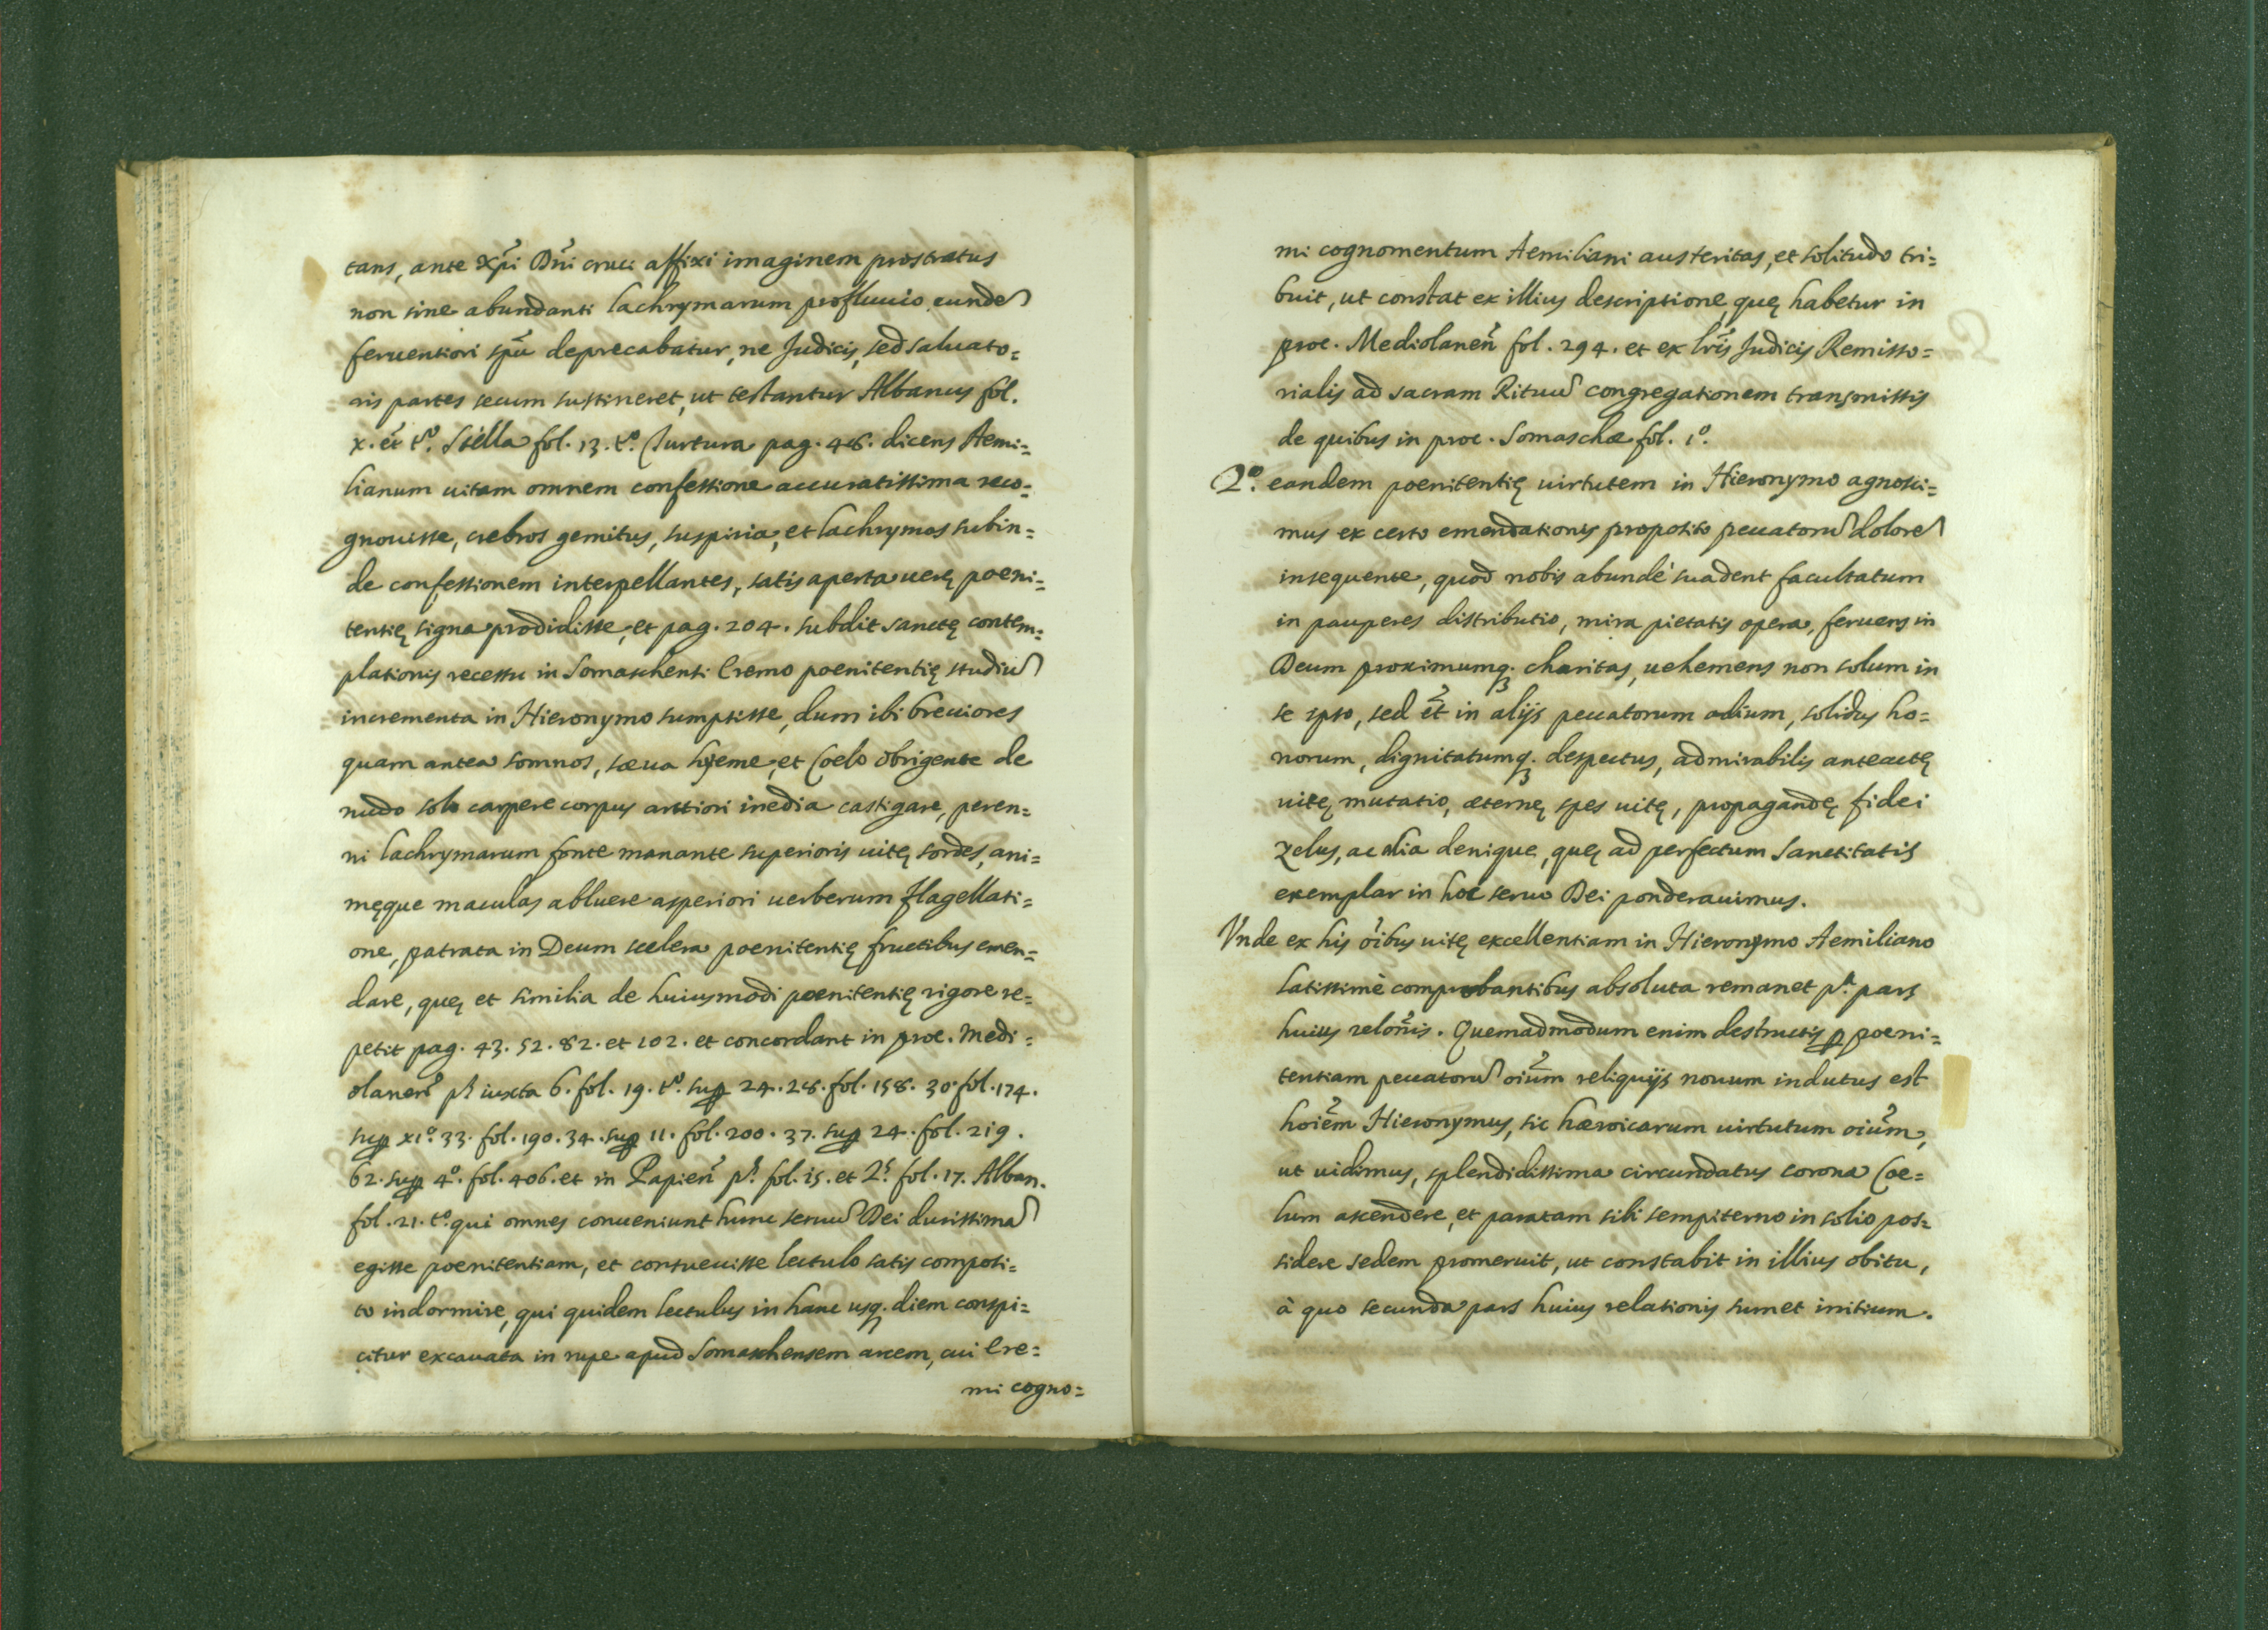 tans, ante Xp̃i Dñi cruci affixi imaginem prostratus
non sine abundanti lachrymarum profluuio eunde᷈
feruentiori sp̃u deprecabatur, ne Judicis, sed saluato=
ris partes secum sustineret, ut testantur Albanus fol.
x. et tº. Stella fol. 13. tº. Turtura pag. 48. dicens Aemi=
lianum uitam omnem confessione accuratissima reco=
gnouisse, crebros gemitus, suspiria, et lachrymas subin=
de confessionem interpellantes, satis aperta uerę poeni=
tentię signa prodidisse, et pag. 204. subdit sanctę contem=
plationis recessu in Somaschensi Eremo poenitentię studiu᷈
incrementa in Hieronymo sumpsisse, dum ibi breuiores
quam antea somnos, sæua hyeme, et Coelo obrigente de
nudo solo carpere corpus arctiori inedia castigare, peren=
ni lachrymarum fonte manante superioris uitę sordes, ani=
męque maculas abluere asperiori uerberum flagellati=
one, patrata in Deum scelera poenitentię fructibus emen=
dare, quę et similia de huiusmodi poenitentię rigore re=
petit pag. 43. 52. 82. et 102. et concordant in proc. Medi=
olaneñ pº iuxta 6. fol. 19. tº. sup 24. 28. fol. 158. 30. fol. 174.
sup xiº. 33. fol. 190. 34. sup 11. fol. 200. 37. sup 24. fol. 219.
62. sup 4º. fol. 406. et in Papieñ pº. fol. 15. et 2º. fol. 17. Alban.
fol. 21. tº. qui omnes conueniunt hunc seruu᷈ Dei durissima᷈
egisse poenitentiam, et consueuisse lectulo satis composi=
to indormire, qui quidem lectulus in hanc usq. diem conspi=
citur excauata in rupe apud Somaschensem arcem, cui Ere=
mi cogno=
mi cognomentum Aemiliani austeritas, et solitudo tri=
buit, ut constat ex illius descriptione, quę habetur in
proc. Mediolaneñ fol. 294. et ex lr̃is Judicis Remisso=
rialis ad sacram Rituu᷈ congregationem transmissis
de quibus in proc. Somaschæ fol. 1º.
2º. eandem poenitentię uirtutem in Hieronymo agnosci=
mus ex certo emendationis proposito peccatoru᷈ dolore᷈
insequente, quod nobis abundè suadent facultatum
in pauperes distributio, mira pietatis opera, feruens in
Deum proximumq. charitas, uehemens non solum in
se ipso, sed et̃ in alijs peccatorum odium, solidus ho=
norum, dignitatumq. despectus, admirabilis anteactę
uitę mutatio, æternę spes uitę, propagandę fidei
zelus, ac alia denique, quę ad perfectum Sanctitatis
exemplar in hoc seruo Dei ponderauimus.
Vnde ex his oĩbus uitę excellentiam in Hieronymo Aemiliano
latissimè comprobantibus absoluta remanet pª. pars
huius reloñis. Quemadmodum enim destructis p poeni=
tentiam peccatoru᷈ oiũm reliquijs nouum indutus est
hoiẽm Hieronymus, sic hæroicarum uirtutum oiũm,
ut uidimus, splendidissima circundatus corona Coe=
lum ascendere, et paratam sibi sempiterno in solio pos=
sidere sedem promeruit, ut constabit in illius obitu,
à quo secunda pars huius relationis sumet initium.